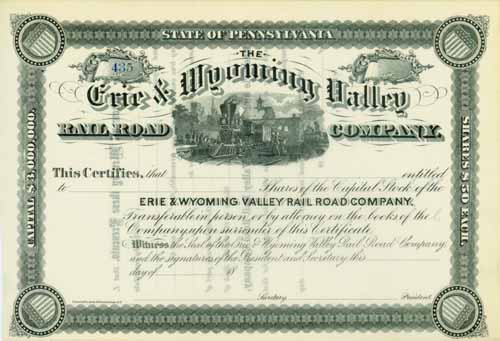 STATE OF PENNSYLVANIA
THE
435
Erie & Wyoming Valley
RAIL ROAD COMPANY.
CAPITAL $3,000,000.
SHARES $50 EACH.
This Certifies, that entitled
to Shares of the Capital Stock of the
ERIE & WYOMING VALLEY RAIL ROAD COMPANY.
Transferable in person or by attorney on the books of the
Company upon surrender of this Certificate.
Witness the Seal of the Erie & Wyoming Valley Rail Road Company
and the signatures of the President and Secretary this
day of 18
Secretary President